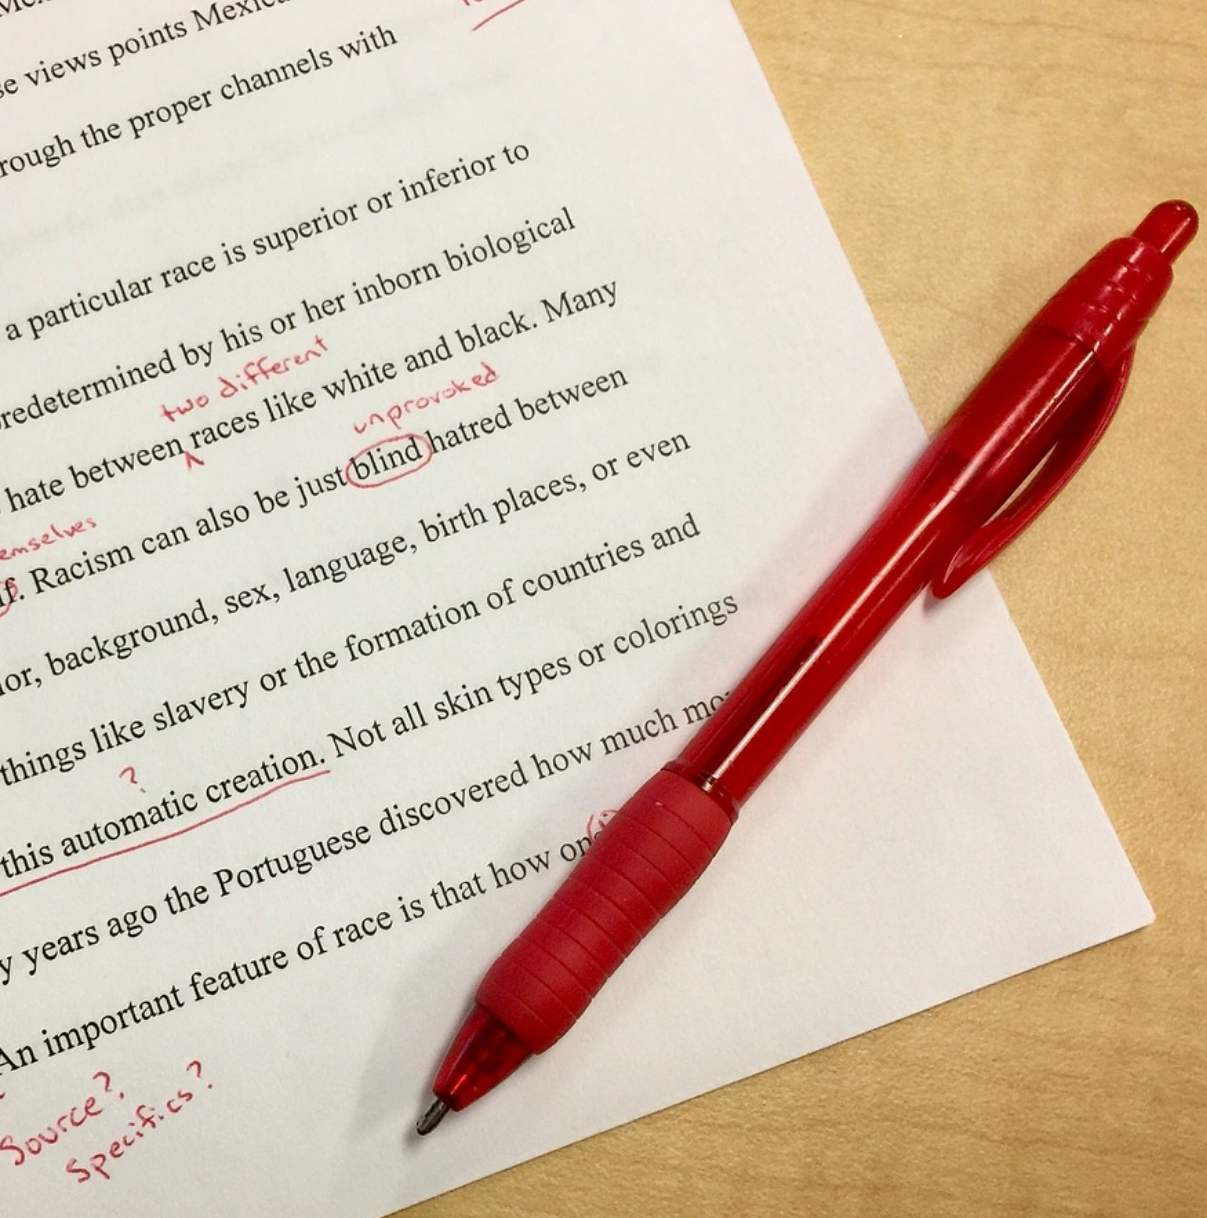 se views points
rough the proper channels with
a particular race is superior or inferior to
redetermined by his or her inborn biological
two different
hate between races like white and black. Many
unprovoked
emselves
f. Racism can also be just blind hatred between
lor, background, sex, language, birth places, or even
things like slavery or the formation of countries and
?
this automatic creation. Not all skin types or colorings
y years ago the Portuguese discovered how much mo
An important feature of race is that how on
Source?
Specifics?